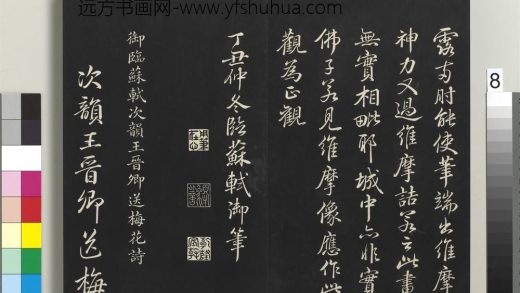 远方书画网-www.yfshuhua.com
露電肘能使筆端出維摩
神力又過維摩詰若云此畫
無實相毗耶城中亦非實
佛子若見維摩像應作此
觀為正觀
丁丑仲冬臨蘇軾御筆
御臨蘇軾次韻王晉卿送梅花詩
次韻王晉卿送梅
8